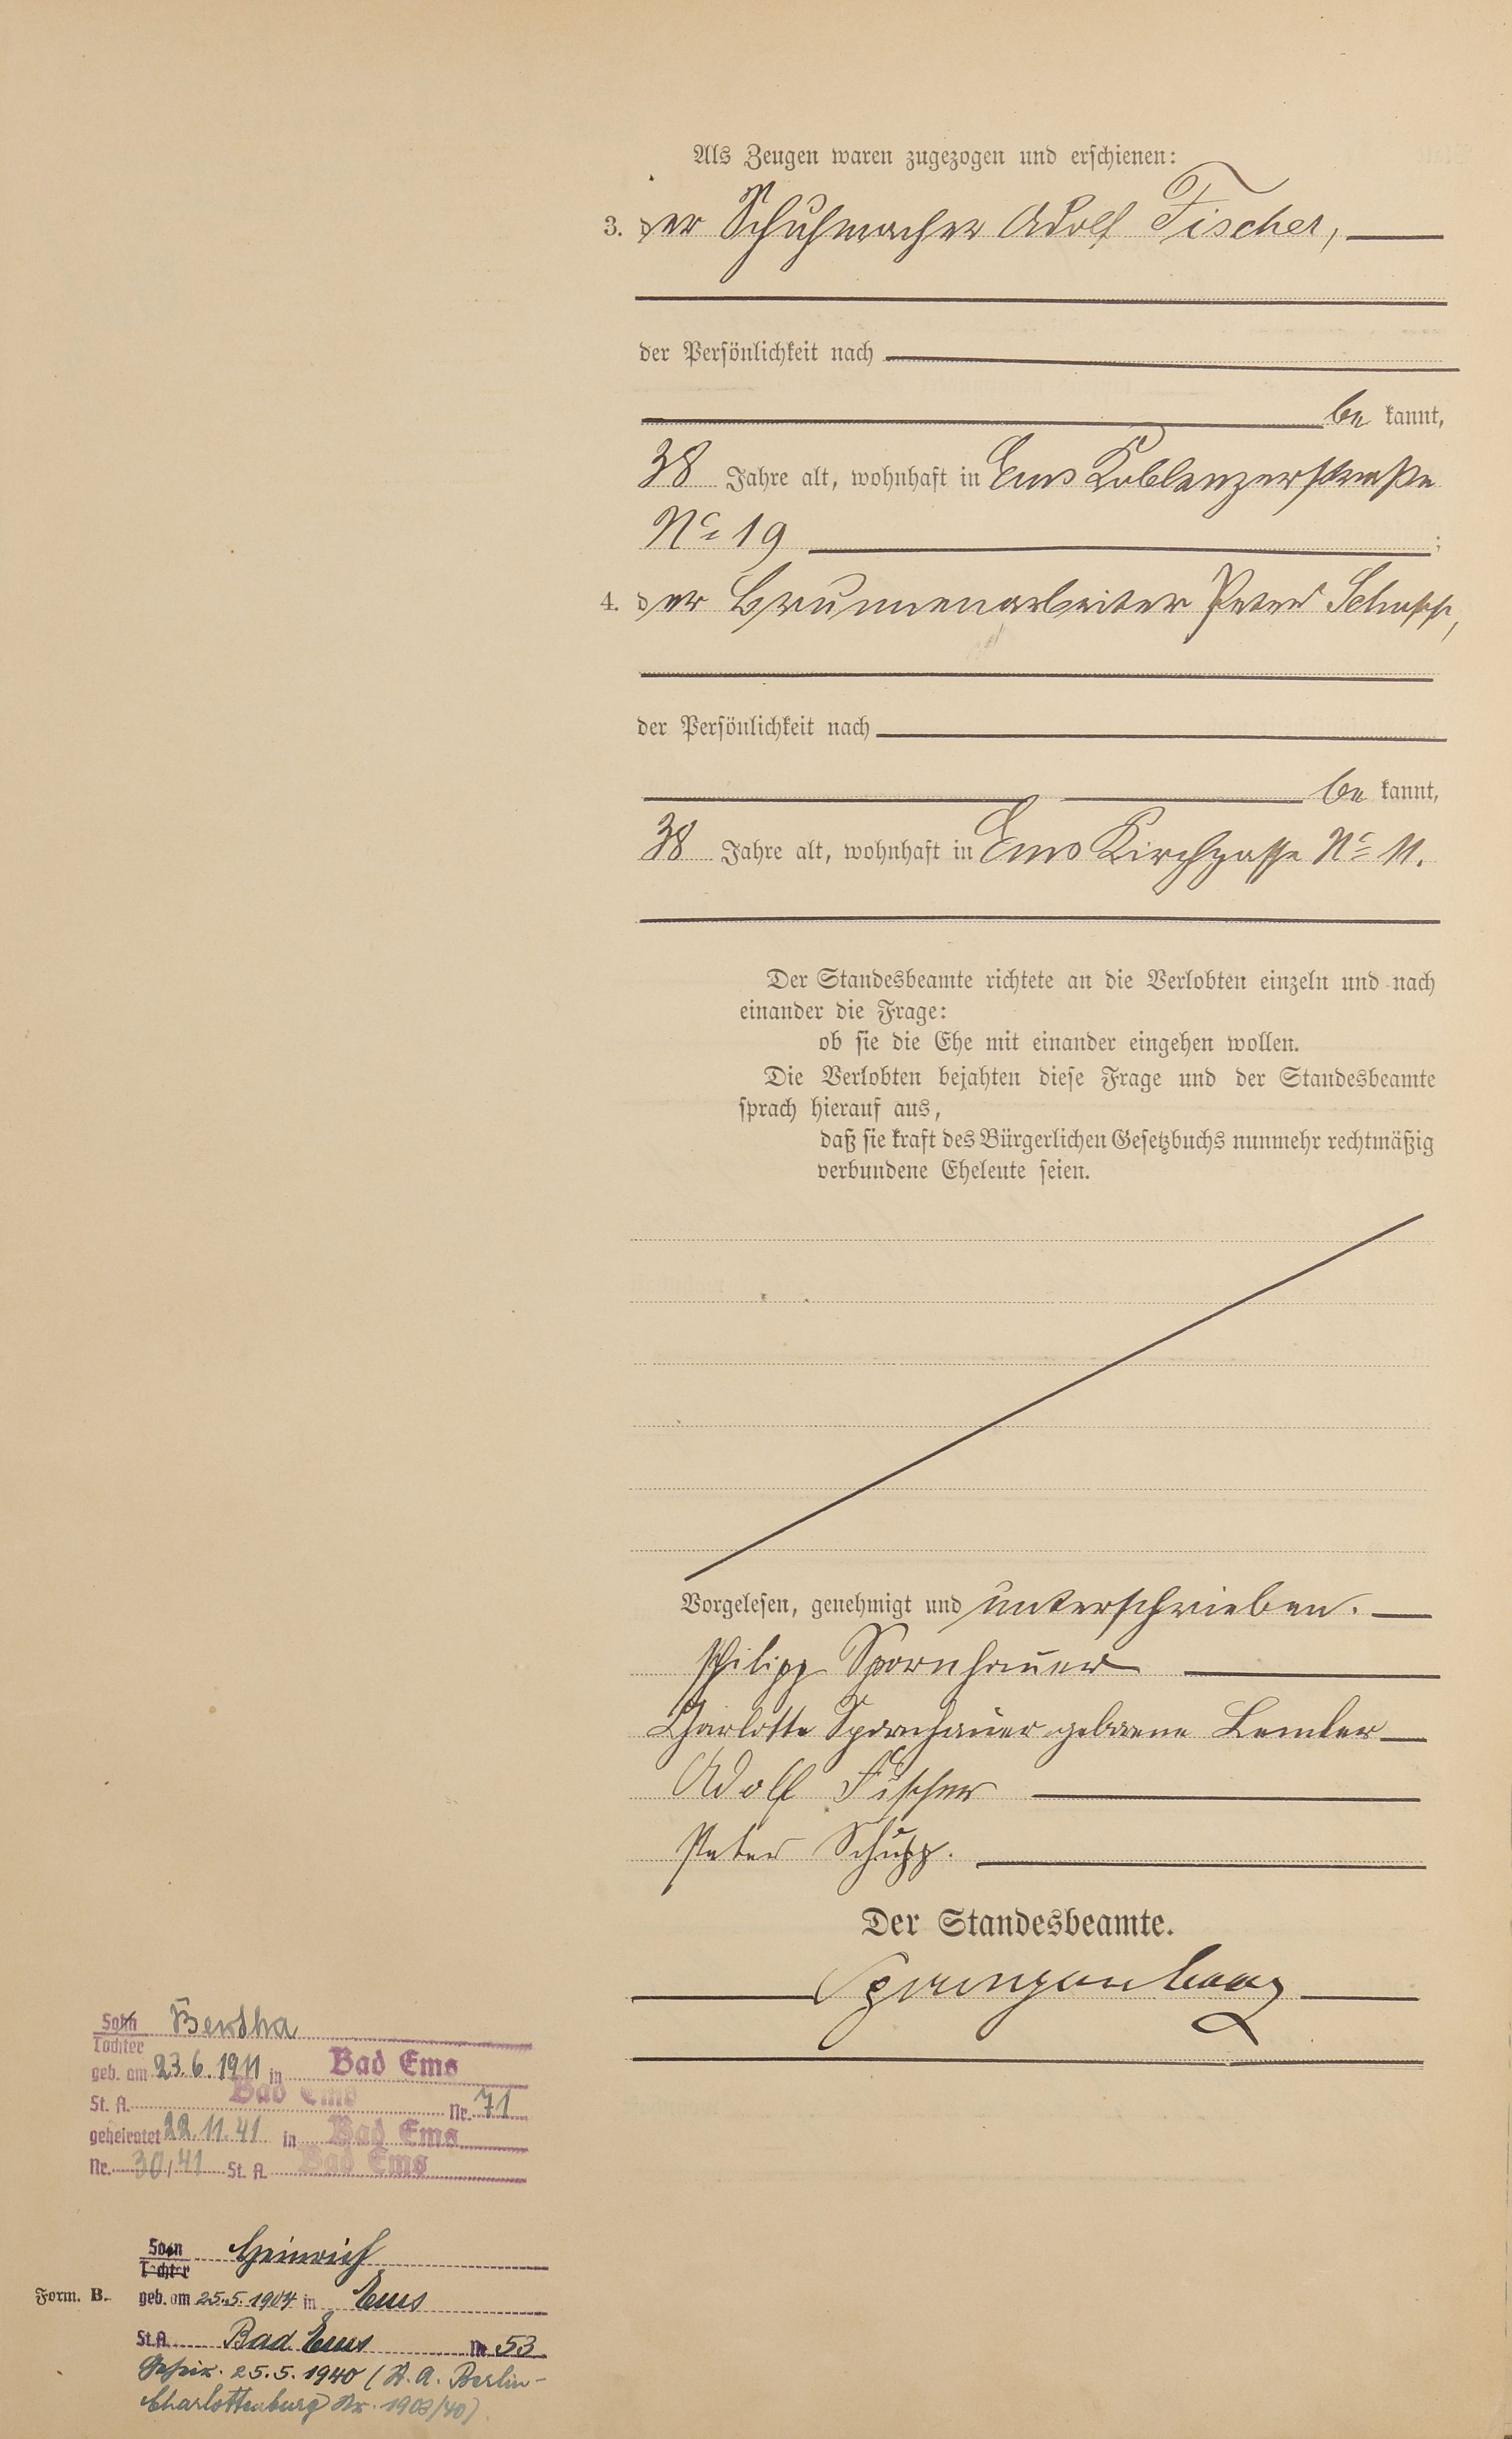 Als Zeugen waren zugezogen und erschienen:
3. der Schuhmacher Adolf Fischer,
der Persönlichkeit nach
be kannt,
38 Jahre alt, wohnhaft in Ems Koblenzerstraße
No 19 ;
4. der Brunnenarbeiter Peter Schupp,
der Persönlichkeit nach
be kannt,
38 Jahre alt, wohnhaft in Ems Kirchgasse No 11.
Der Standesbeamte richtete an die Verlobten einzeln und nach
einander die Frage:
ob sie die Ehe mit einander eingehen wollen.
Die Verlobten bejahten diese Frage und der Standesbeamte
sprach hierauf aus,
daß sie kraft des Bürgerlichen Gesetzbuchs nunmehr rechtmäßig
verbundene Eheleute seien.
Vorgelesen, genehmigt und unterschrieben.
Philipp Spornhauer
Charlotte Spornhauer geborene Lemler
Adolf Fischer
Peter Schupp.
Der Standesbeamte.
Sohn Bertha
Tochter
geb. am 23.6.1911 in Bad Ems
St. A. Bad Ems Nr. 71
geheiratet 22.11.41 in Bad Ems
Nr. 30/41 St. A. Bad Ems
Sohn Heinrich
Tochter
Form. B. geb. am 25.5.1904 in Ems
St.A. Bad Ems Nr 53
Geheir. 25.5.1940 (St. A. Berlin-
Charlottenburg Nr. 1903/40)